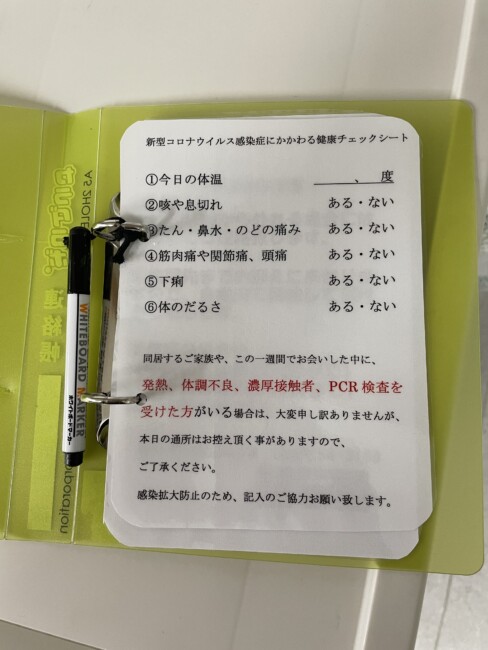 新型コロナウイルス感染症にかかわる健康チェックシート
①今日の体温　、　度
②咳や息切れ　ある・ない
③たん・鼻水・のどの痛み　ある・ない
④筋肉痛や関節痛、頭痛　ある・ない
⑤下痢　ある・ない
⑥体のだるさ　ある・ない
同居するご家族や、この一週間でお会いした中に、
発熱、体調不良、濃厚接触者、PCR 検査を
受けた方がいる場合は、大変申し訳ありませんが、
本日の通所はお控え頂く事がありますので、
ご了承ください。
感染拡大防止のため、記入のご協力お願い致します。
WHITEBOARD MARKER
ホワイトボードマーカー
A5 2HOLE
連絡帳
orporation